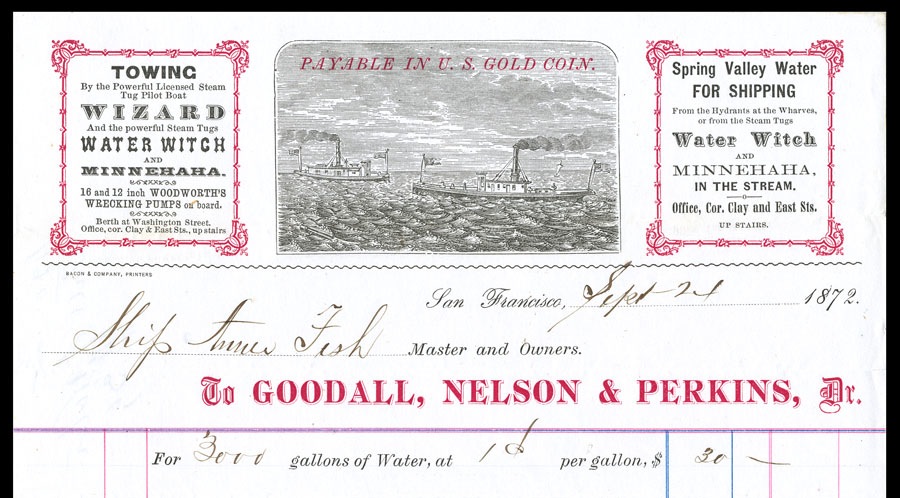 TOWING
By the Powerful Licensed Steam
Tug Pilot Boat
WIZARD
And the powerful Steam Tugs
WATER WITCH
AND
MINNEHAHA.
16 and 12 inch WOODWORTH'S
WRECKING PUMPS on board.
Berth at Washington Street.
Office, cor. Clay & East Sts., up stairs
PAYABLE IN U. S. GOLD COIN.
Spring Valley Water
FOR SHIPPING
From the Hydrants at the Wharves,
or from the Steam Tugs
Water Witch
AND
MINNEHAHA,
IN THE STREAM.
Office, Cor. Clay and East Sts.
UP STAIRS.
BACON & COMPANY, PRINTERS
San Francisco, Sept 24 1872.
Ship Fish Master and Owners.
To GOODALL, NELSON & PERKINS, Dr.
For 3000 gallons of Water, at 1¢ per gallon, $ 30 —